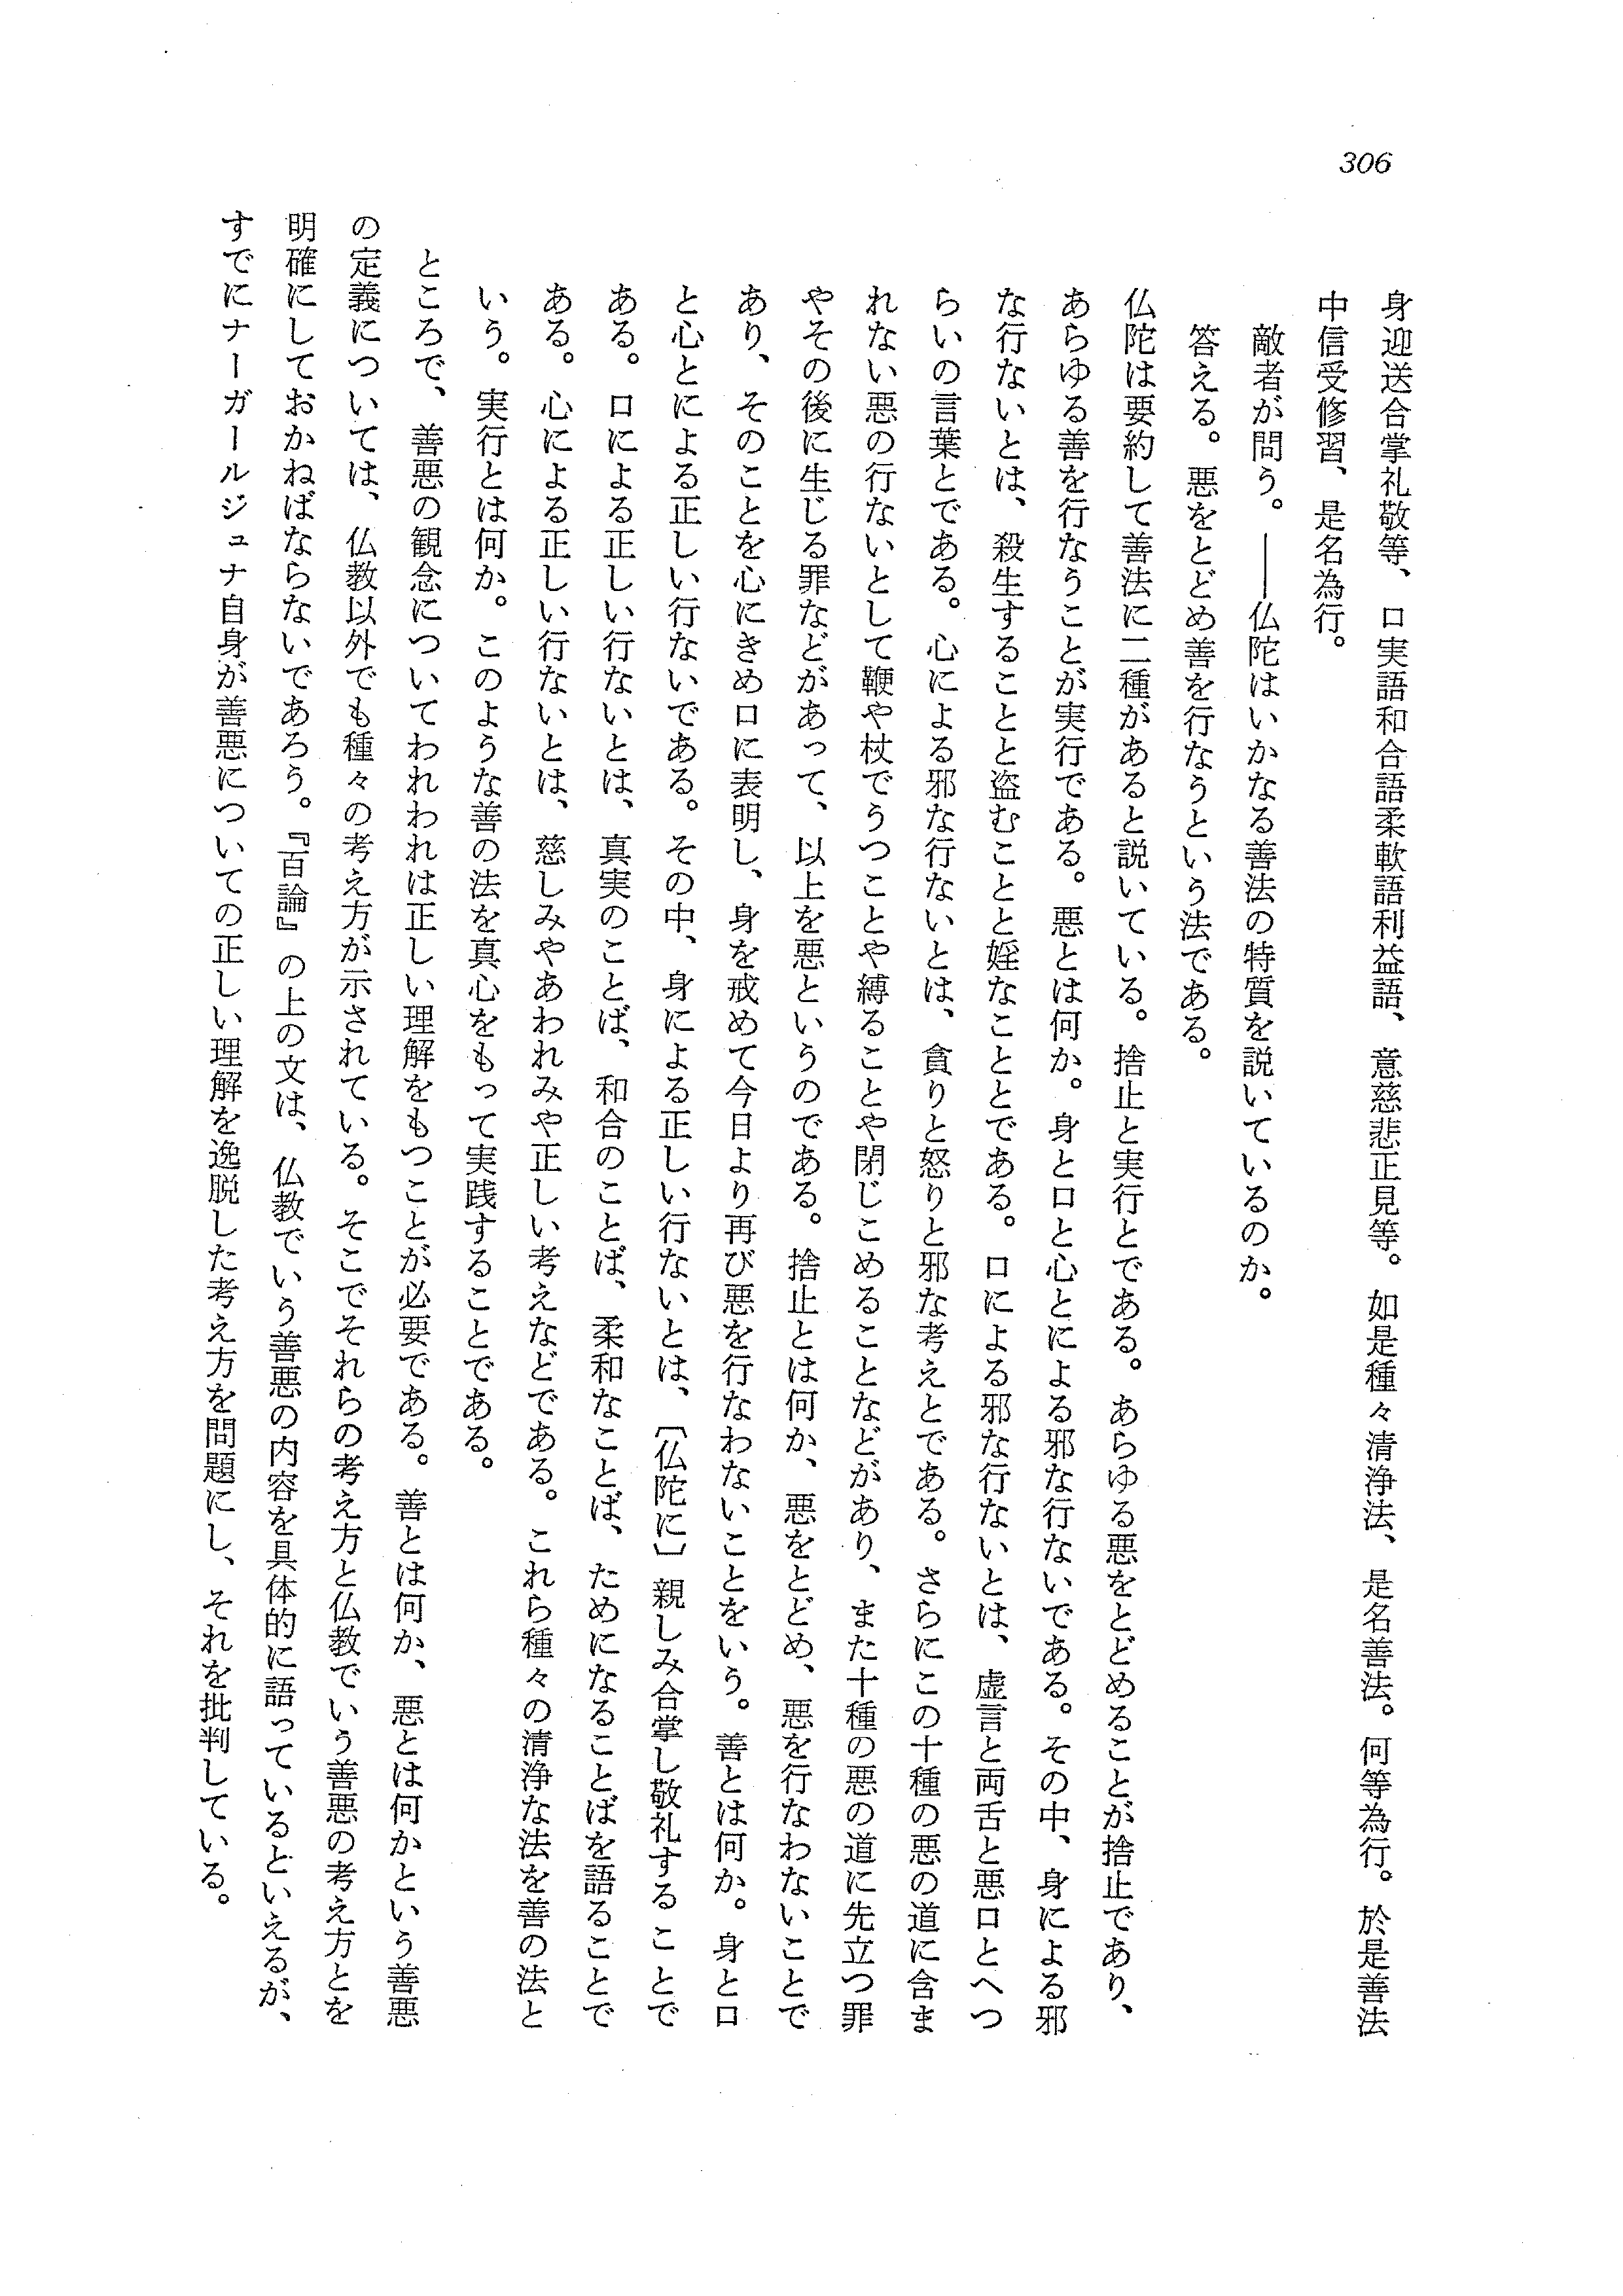 306
身迎送合掌礼敬等、口実語和合語柔軟語利益語、意慈悲正見等。如是種々清浄法、是名善法。何等為行。於是善法
中信受修習、是名為行。
敵者が問う。――仏陀はいかなる善法の特質を説いているのか。
答える。悪をとどめ善を行なうという法である。
仏陀は要約して善法に二種があると説いている。捨止と実行とである。あらゆる悪をとどめることが捨止であり、
あらゆる善を行なうことが実行である。悪とは何か。身と口と心とによる邪な行ないである。その中、身による邪
な行ないとは、殺生することと盗むことと婬なこととである。口による邪な行ないとは、虚言と両舌と悪口とへつ
らいの言葉とである。心による邪な行ないとは、貪りと怒りと邪な考えとである。さらにこの十種の悪の道に含ま
れない悪の行ないとして鞭や杖でうつことや縛ることや閉じこめることなどがあり、また十種の悪の道に先立つ罪
やその後に生じる罪などがあって、以上を悪というのである。捨止とは何か、悪をとどめ、悪を行なわないことで
あり、そのことを心にきめ口に表明し、身を戒めて今日より再び悪を行なわないことをいう。善とは何か。身と口
と心とによる正しい行ないである。その中、身による正しい行ないとは、〔仏陀に〕親しみ合掌し敬礼することで
ある。口による正しい行ないとは、真実のことば、和合のことば、柔和なことば、ためになることばを語ることで
ある。心による正しい行ないとは、慈しみやあわれみや正しい考えなどである。これら種々の清浄な法を善の法と
いう。実行とは何か。このような善の法を真心をもって実践することである。
ところで、善悪の観念についてわれわれは正しい理解をもつことが必要である。善とは何か、悪とは何かという善悪
の定義については、仏教以外でも種々の考え方が示されている。そこでそれらの考え方と仏教でいう善悪の考え方とを
明確にしておかねばならないであろう。『百論』の上の文は、仏教でいう善悪の内容を具体的に語っているといえるが、
すでにナーガールジュナ自身が善悪についての正しい理解を逸脱した考え方を問題にし、それを批判している。